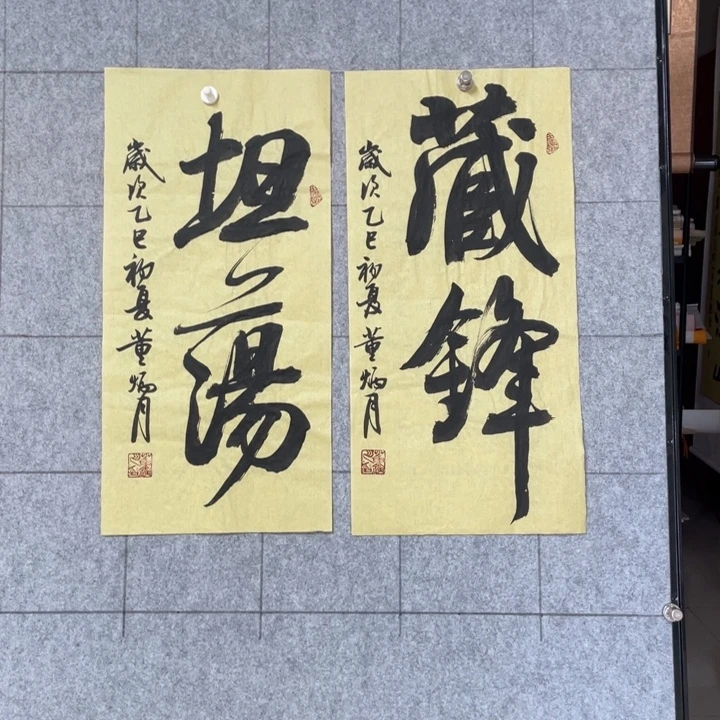 藏鋒
歲次乙巳初夏董炳月
坦蕩
歲次乙巳初夏董炳月